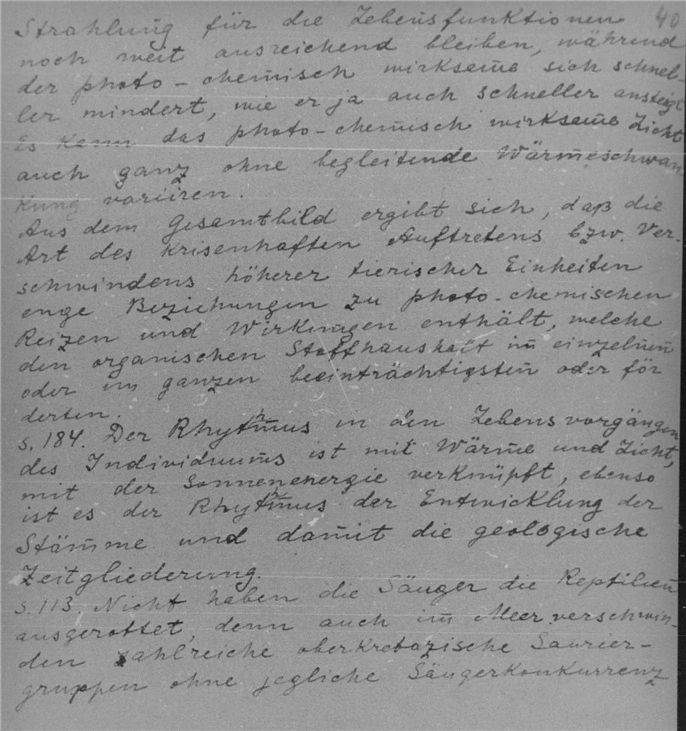 40
Strahlung für die Lebensfunktionen
noch weit ausreichend bleiben, während
der photo-chemisch wirksame sich schnel-
ler mindert, wie er ja auch schneller ansteigt
Es kann das photo-chemisch wirksame Licht
auch ganz ohne begleitende Wärmeschwan
kung variiren.
Aus dem Gesamtbild ergibt sich, daß die
Art des krisenhaften Auftretens bzw. Ver-
schwindens höherer tierischer Einheiten
enge Beziehungen zu photo-chemischen
Reizen und Wirkungen enthält, welche
den organischen Stoffhaushalt im einzelnen
oder im ganzen beeinträchtigsten oder för
derten.
S. 184. Der Rhythmus in den Lebensvorgängen
des Individuums ist mit Wärme und Licht,
mit der Sonnenenergie verknüpft, ebenso
ist es der Rhythmus der Entwicklung der
Stämme und damit die geologische
Zeitgliederung.
S. 113. Nicht haben die Säuger die Reptilien
ausgerottet, denn auch im Meer verschwin-
den zahlreiche oberkretazische Saurier-
gruppen ohne jegliche Säugerkonkurrenz